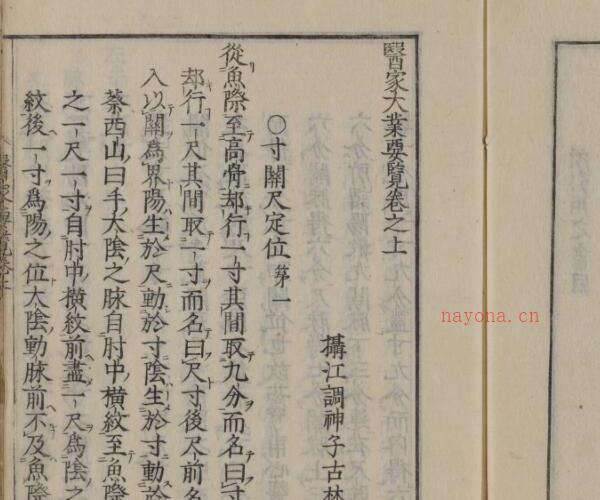 醫家大業要覽卷之上
攝江調神子古林
〇寸關尺定位第一
從魚際至高骨却行一寸其間取九分而名曰寸
却行一尺其間取一寸而名曰尺寸後尺前名
入以關為界陽生於尺動於寸陰生於寸動於
蔡西山曰手太陰之脉自肘中橫紋至魚際
之一尺一寸自肘中橫紋前盡一尺爲陰之
紋後一寸爲陽之位太陰動脉前不及魚際
nayona.cn